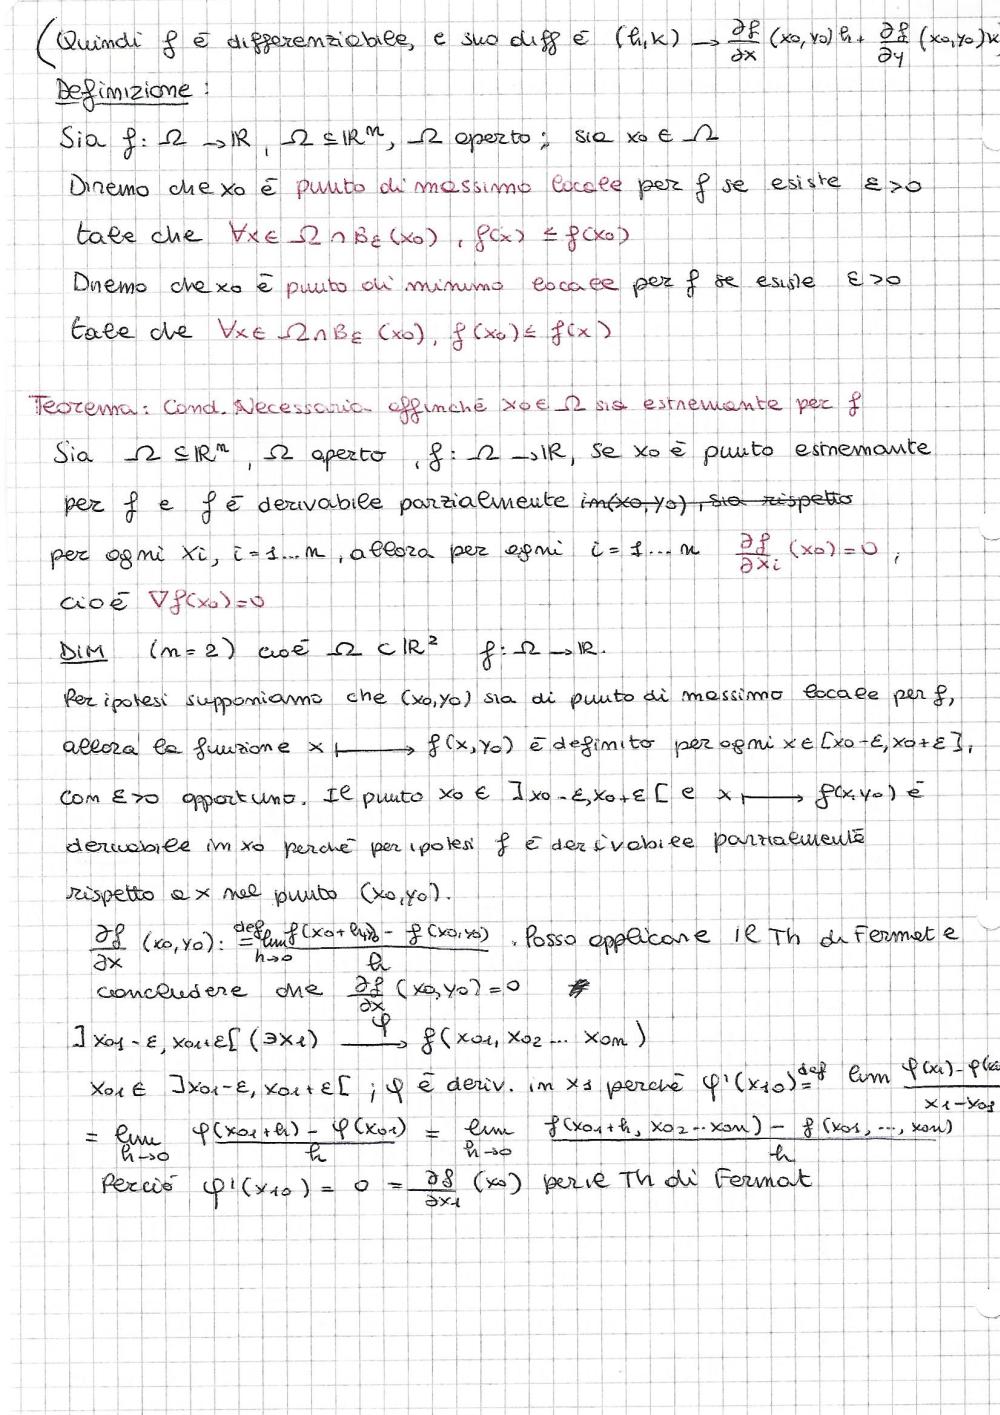 (Quindi f è differenziabile, e suo diff è (h,k) → ∂f/∂x (x0,y0)h + ∂f/∂y (x0,y0)k
Definizione:
Sia f: Ω → ℝ, Ω ⊆ ℝⁿ, Ω aperto; sia x0 ∈ Ω
Diremo che x0 è punto di massimo locale per f se esiste ε>0
tale che ∀x ∈ Ω ∩ Bε(x0), f(x) ≤ f(x0)
Diremo che x0 è punto di minimo locale per f se esiste ε>0
tale che ∀x ∈ Ω ∩ Bε(x0), f(x0) ≤ f(x)
Teorema: Cond. Necessaria affinché x0 ∈ Ω sia estremante per f
Sia Ω ⊆ ℝⁿ, Ω aperto, f: Ω → ℝ, se x0 è punto estremante
per f e f è derivabile parzialmente in (x0,y0), sia rispetto
per ogni xi, i=1...n, allora per ogni i=1...n ∂f/∂xi (x0)=0,
cioè ∇f(x0)=0
DIM (n=2) cioè Ω ⊂ ℝ² f: Ω → ℝ.
Per ipotesi supponiamo che (x0,y0) sia di punto di massimo locale per f,
allora la funzione x ↦ f(x,y0) è definito per ogni x ∈ [x0-ε, x0+ε],
con ε>0 opportuno. Il punto x0 ∈ ]x0-ε, x0+ε[ e x ↦ f(x,y0) è
derivabile in x0 perché per ipotesi f è derivabile parzialmente
rispetto a x nel punto (x0,y0).
∂f/∂x (x0,y0): =def lim h→0 f(x0+h,y0) - f(x0,y0) / h. Posso applicare il Th di Fermat e
concludere che ∂f/∂x (x0,y0)=0
]x01-ε, x01+ε[ (∋x1) →φ f(x01, x02 ... x0n)
x01 ∈ ]x01-ε, x01+ε[ ; φ è deriv. in x1 perché φ'(x10) =def lim φ(x1)-φ(x0 / x1-x01
= lim h→0 φ(x01+h) - φ(x01) / h = lim h→0 f(x01+h, x02...x0n) - f(x01, ..., x0n) / h
Perciò φ'(x10) = 0 = ∂f/∂x1 (x0) per il Th di Fermat